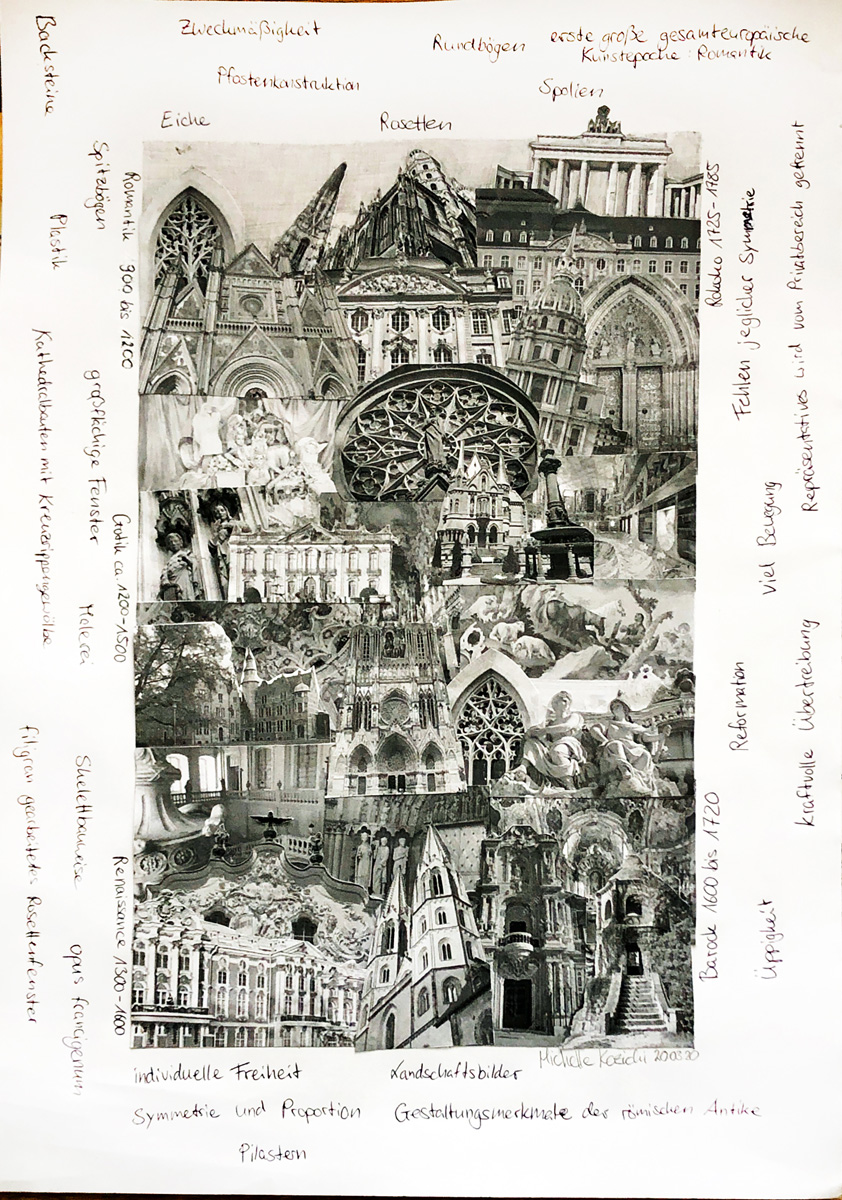 Zweckmäßigkeit
Rundbögen
erste große gesamteuropäische
Kunstepoche: Romantik
Pfostenkonstruktion
Spolien
Eiche
Rosetten
Backsteine
Spitzbögen
Plastik
Romantik 900 bis 1200
Kathedralbauten mit Kreuzrippengewölbe
großflächige Fenster
Gotik ca. 1200-1500
Malerei
filigran gearbeitetes Rosettenfenster
Skelettbauweise
opus francigenum
Renaissance 1300-1600
Rokoko 1725-1785
Fehlen jeglicher Symmetrie
Repräsentatives wird vom Privatbereich getrennt
viel Bewegung
Reformation
kraftvolle Übertreibung
Barock 1600 bis 1720
Üppigkeit
Michelle 20.03.20
individuelle Freiheit
Landschaftsbilder
Symmetrie und Proportion
Gestaltungsmerkmale der römischen Antike
Pilastern